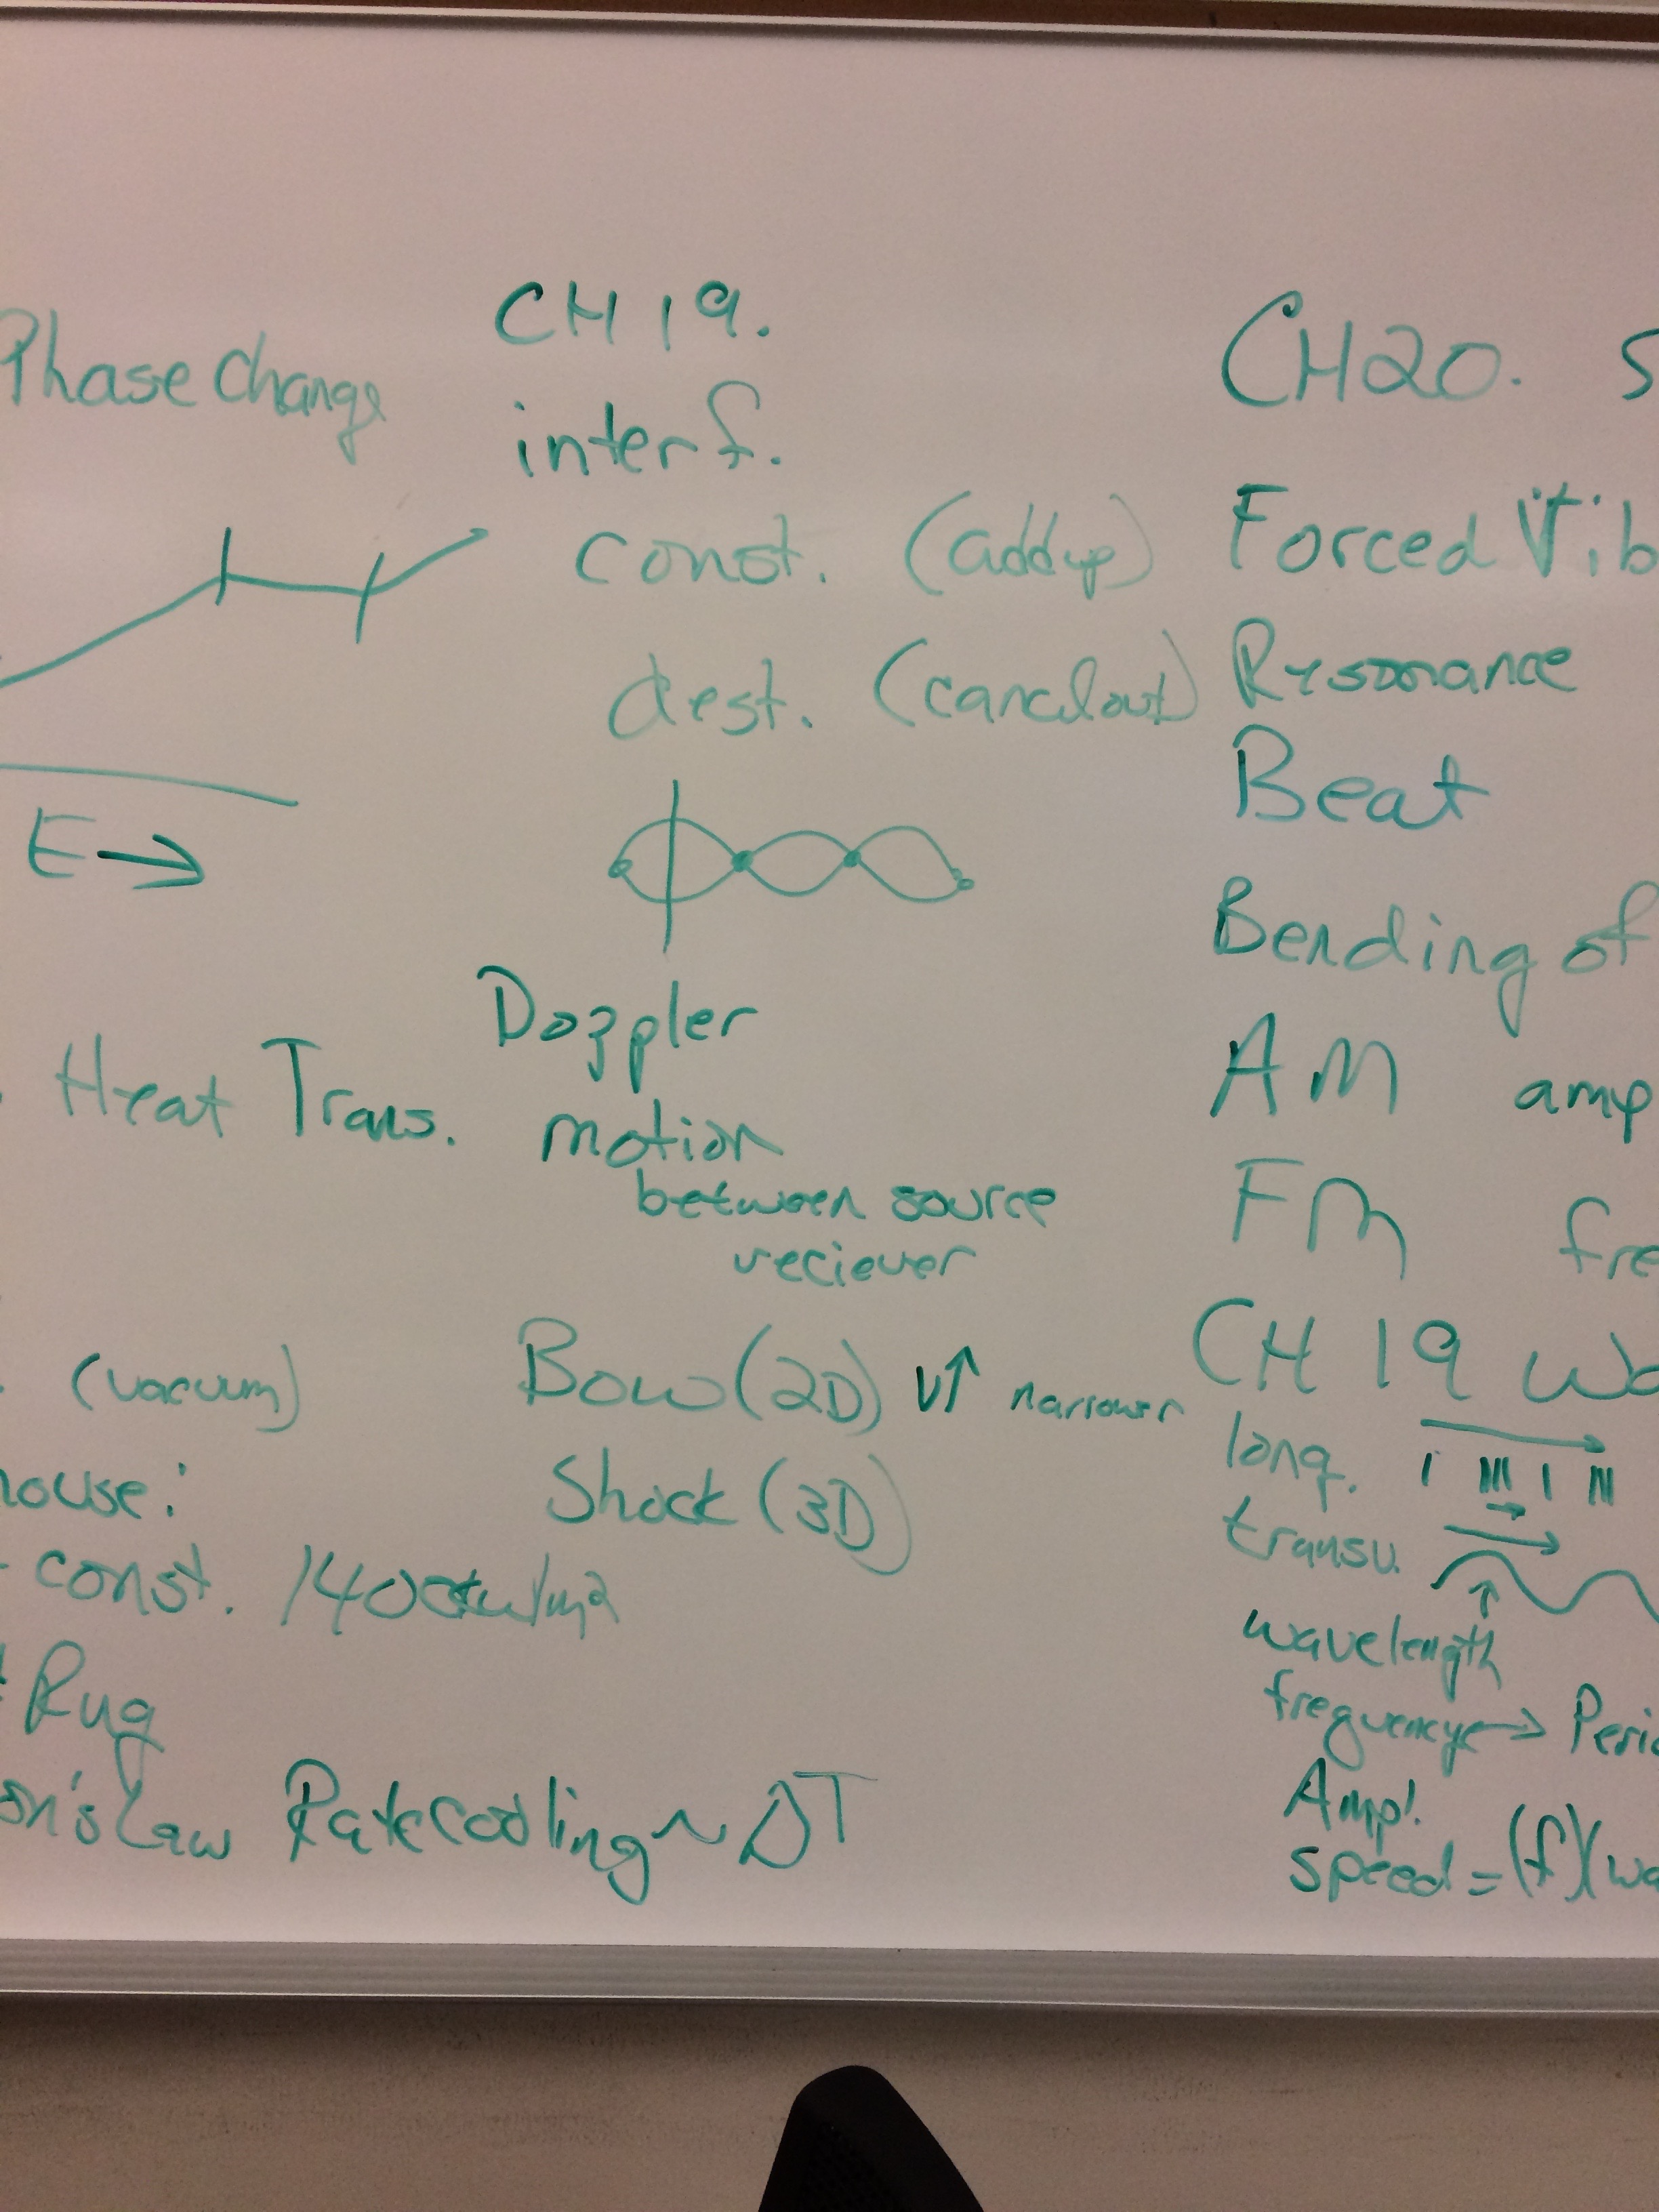 Phase Change
E →
Heat Trans.
(vacuum)
house:
const. 1400 w/m²
Rug
on's Law Rate cooling ~ ΔT
CH 19.
interf.
const. (add up)
dest. (cancel out)
Doppler
motion
between source
reciever
Bow (2D) v↑ narrower
Shock (3D)
CH 20. S
Forced Vib
Resonance
Beat
Bending of
AM amp
FM fre
CH 19 Wa
long.
transv.
wavelength
frequency → Perio
Ampl.
speed = (f)(wa